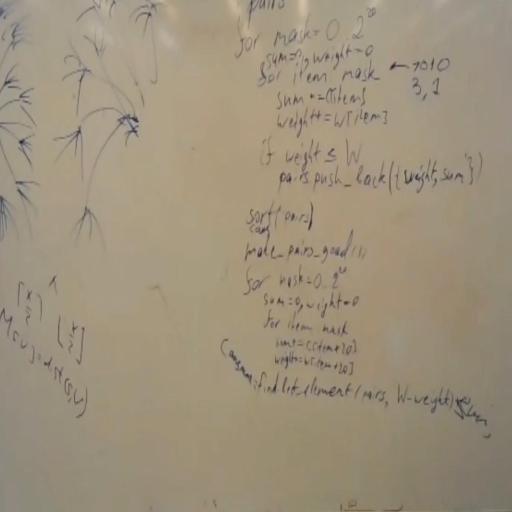 pairs
for mask=0..2^20
sum=0, weight=0
for item mask ← 1010
3,1
sum+=C[item]
weight+=W[item]
if weight ≤ W
pairs.push_back({weight, sum})
sort(pairs)
make_pairs_good()
for mask=0..2^20
sum=0, weight=0
for item mask
sum+=C[item+20]
weight+=W[item+20]
find_let_element(pairs, W-weight)